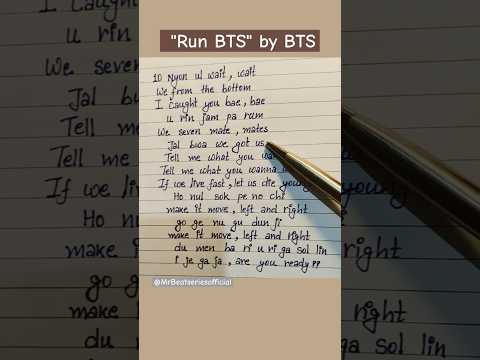 "Run BTS" by BTS
10 Nyon ul wait, wait
We from the bottom
I caught you bae, bae
u rin jam pa rum
We seven mate, mates
Jal bwa we got us
Tell me what you wan
Tell me what you wanna
If we live fast, let us die young
Ho nul sok pe no chi
make it move, left and right
go ge nu gu dun ji
make it move, left and right
du men ba ri u ri ga sol lin
i je ga ja, are you ready??
@MrBeatseriesofficial